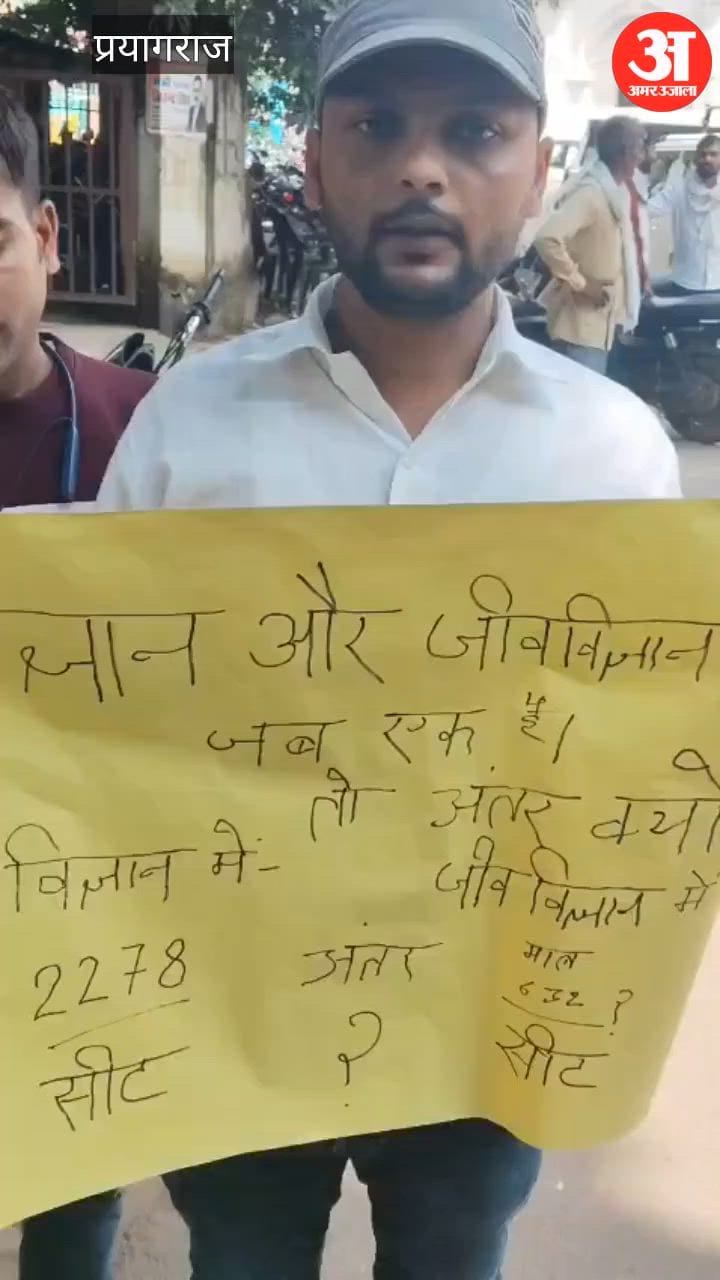 प्रयागराज
अ
अमर उजाला
ज्ञान और जीवविज्ञान
जब एक है।
तो अंतर क्यो
विज्ञान में- जीव विज्ञान में
2278 अंतर मात्र
632 ?
सीट ? सीट